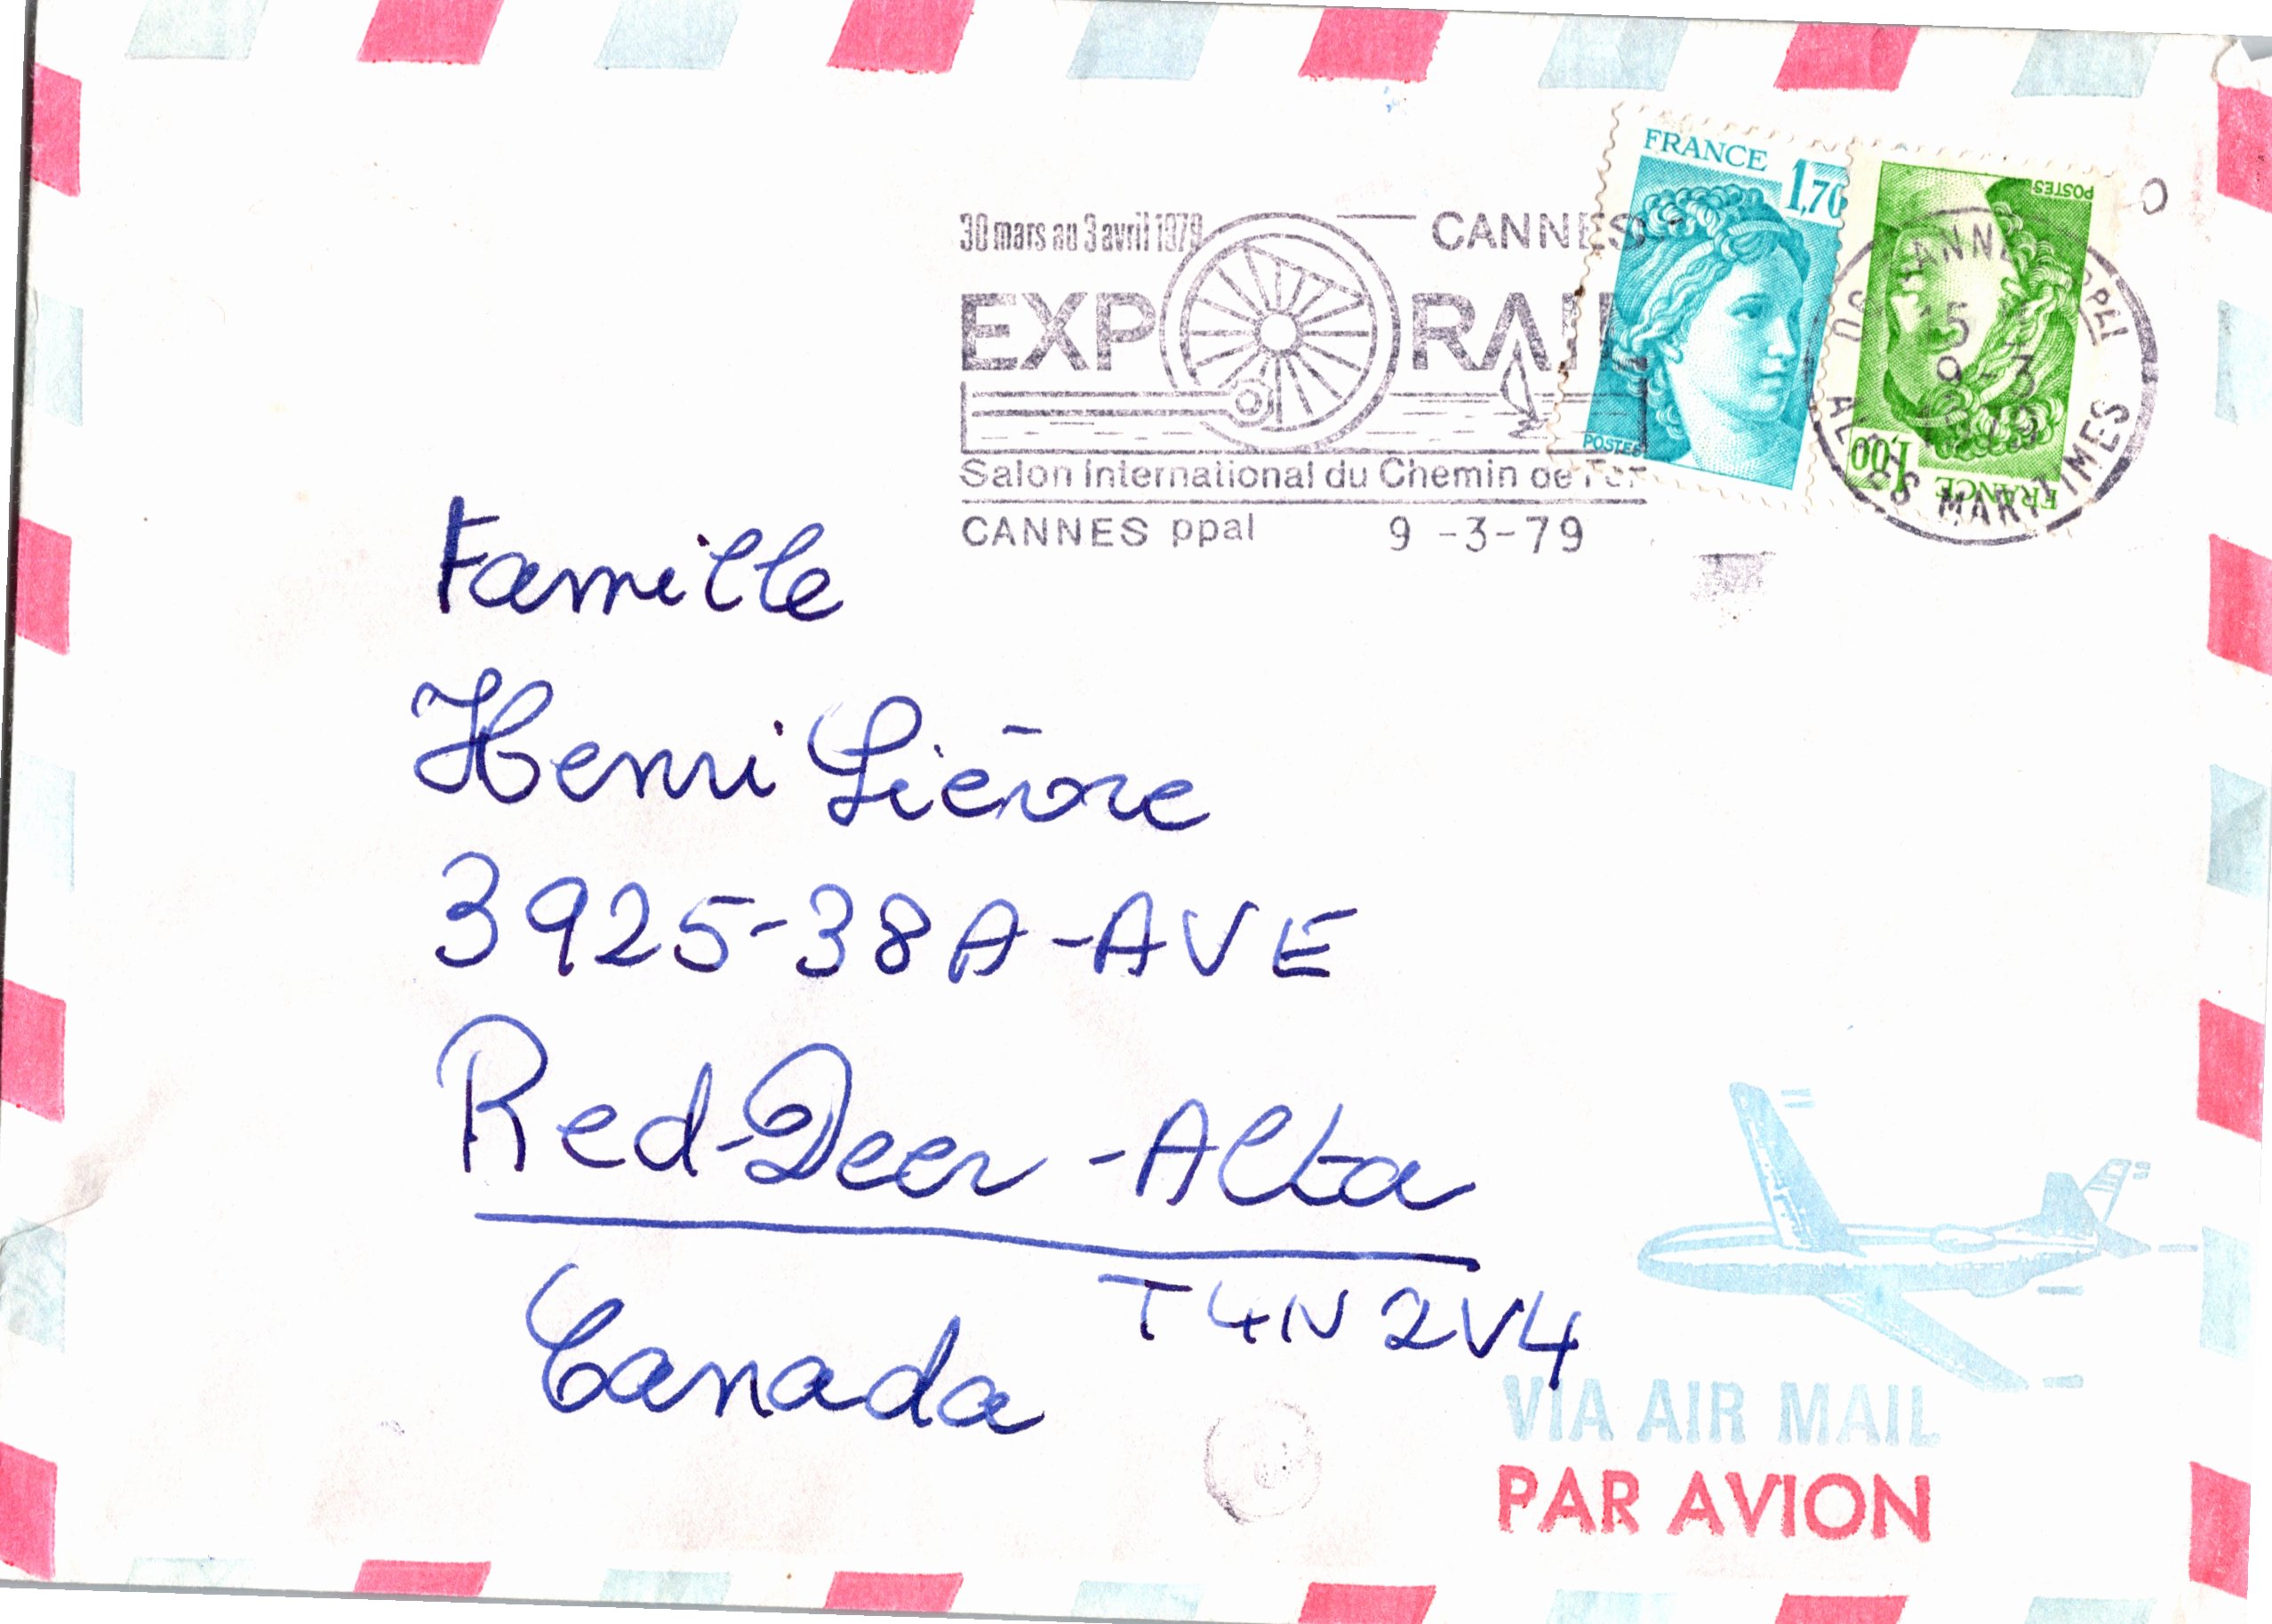 30 mars au 3 avril 1979
CANNES
EXPO RAIL
Salon International du Chemin de Fer
CANNES ppal 9 -3-79
FRANCE
1,70
POSTES
POSTES
1,00
FRANCE
CANNES PPAL
15
9-3
ALPES MARITIMES
Famille
Henri Lièvre
3925-38A-AVE
Red-Deer-Alta
T4N2V4
Canada
VIA AIR MAIL
PAR AVION